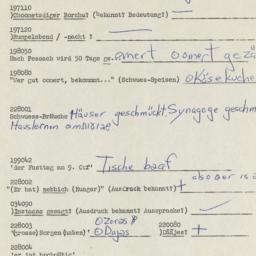 197110
)Choonetzäiger Borchu! (Bekannt? Bedeutung?) —
197120
)Rumpelabend / -nacht ! —
198050
Nach Pessach wird 50 Tage ge. omert oomert gezä
198080
"Wer gut oomert, bekommt..." (Schwues-Speisen) o Käsekuche
228001
Schwuess-Bräuche Häuser geschmückt, Synagoge geschm
199042
"der Fasttag am 9. Old" Tische baaf
228002
"(Er hat) nebbich (Hunger)" (Ausdruck bekannt?) +
034090
)Inzteses gesagt? (Ausdruck bekannt? Aussprache?) —
228003
"(grosse) Sorgen (haben)" o Dajes
220080
)Dääjes? +
228004